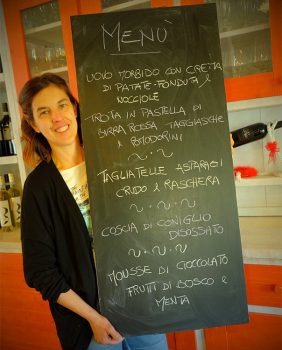 MENÙ
UOVO MORBIDO CON CRETA
DI PATATE-FONDUTA E
NOCCIOLE
TROTA IN PASTELLA DI
BIRRA ROSSA TAGGIASCHE
E POMODORINI
TAGLIATELLE ASPARAGI
CRUDO E RASCHERA
COSCIA DI CONIGLIO
DISOSSATO
MOUSSE DI CIOCCOLATO
FRUTTI DI BOSCO E
MENTA